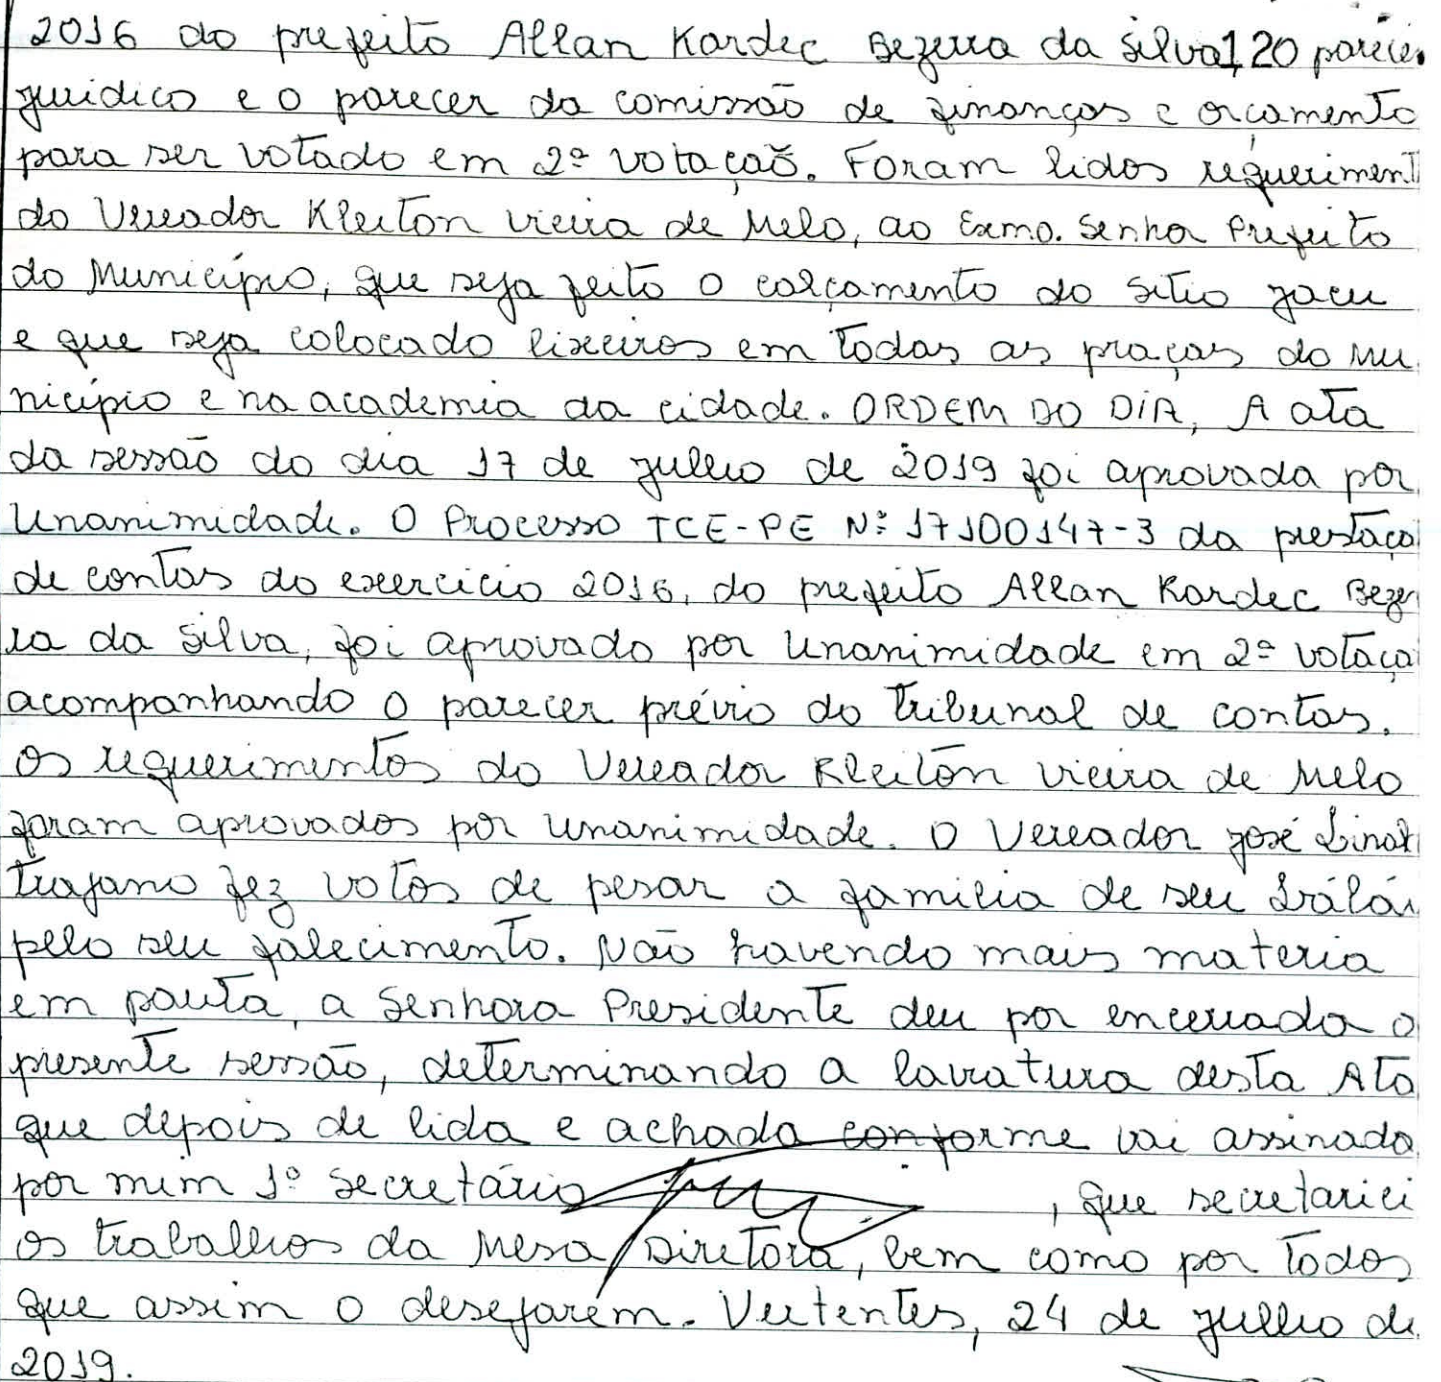 2016 do prefeito Allan Kardec Bezerra da Silva, 20 parecer
juridico e o parecer da comissão de finanças e orçamento
para ser votado em 2ª votação. Foram lidos requeriment
do Vereador Kleiton vieira de Melo, ao Exmo. Senhor Prefeito
do Município, que seja feito o calçamento do Sitio jacu
e que seja colocado lixeiros em todas as praças do mu
nicípio e na academia da cidade. ORDEM DO DIA, A ata
da sessão do dia 17 de julho de 2019 foi aprovada por
Unanimidade. O Processo TCE-PE Nº 17100147-3 da prestaçã
de contas do exercício 2016, do prefeito Allan Kardec Bezer
ra da Silva, foi aprovado por Unanimidade em 2ª votaçã
acompanhando o parecer prévio do Tribunal de contas.
Os requerimentos do Vereador Kleiton vieira de Melo
foram aprovados por unanimidade. O Vereador josé
trajano fez votos de pesar a familia de seu
pelo seu falecimento. Não havendo mais materia
em pauta, a Senhora Presidente deu por encerrada a
presente sessão, determinando a lavratura desta Ata
que depois de lida e achada conforme vai assinada
por mim 1º secretário , que secretariei
os trabalhos da Mesa Diretora, bem como por todos
que assim o desejarem. Vertentes, 24 de julho de
2019.